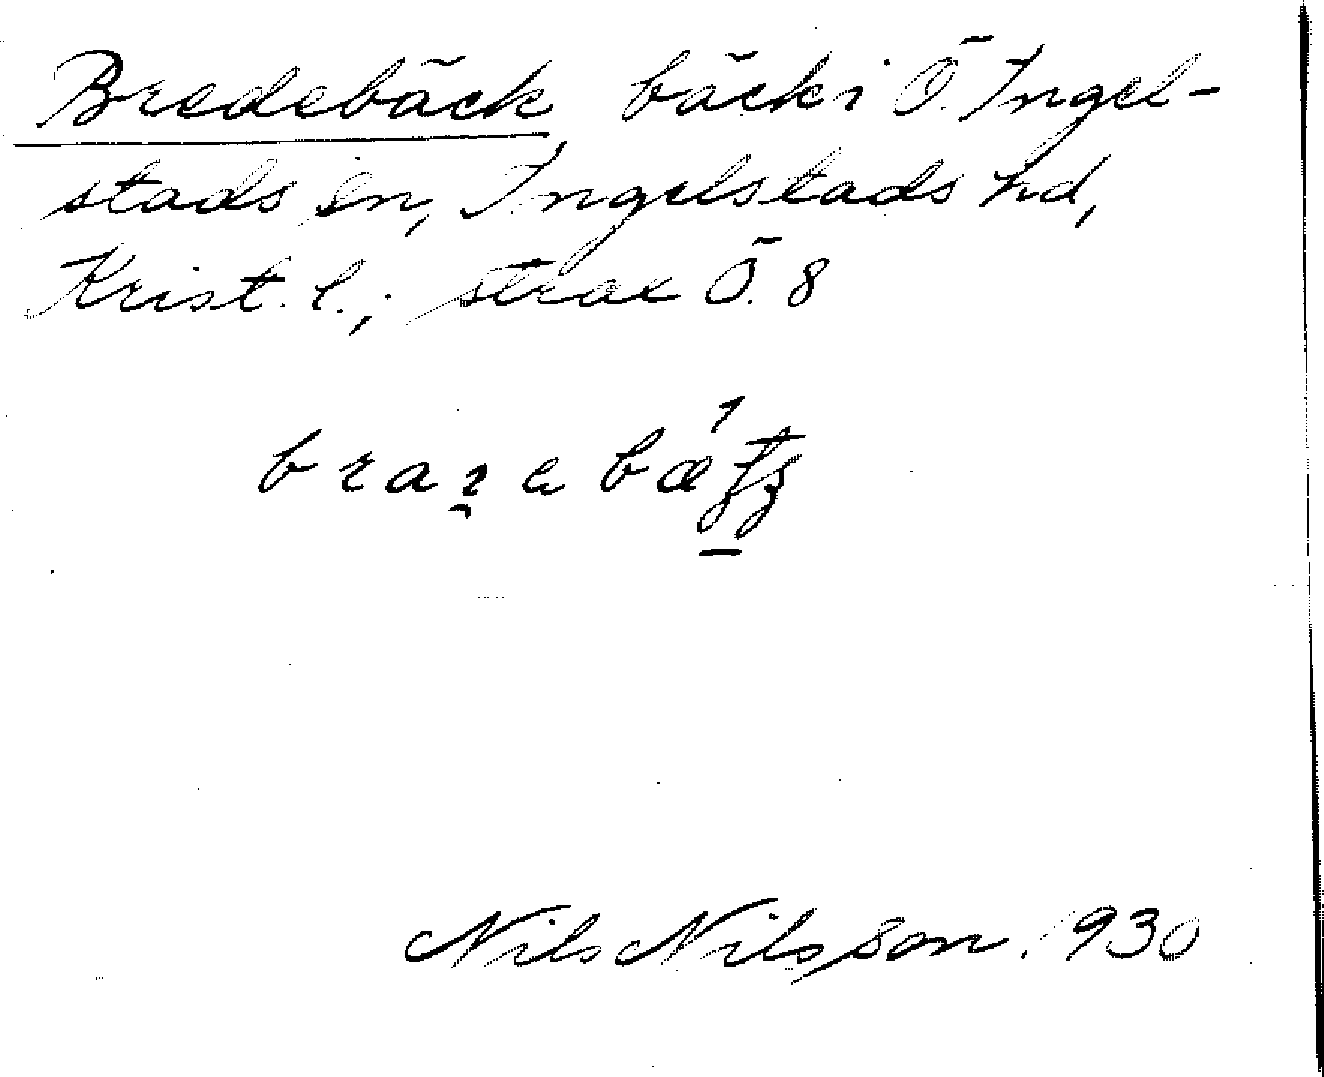 Bredebäck, bäck i Ö. Ingel-
stads sn, Ingelstads hd,
Krist. l.; strax Ö. 8
Nils Nilsson. 1930